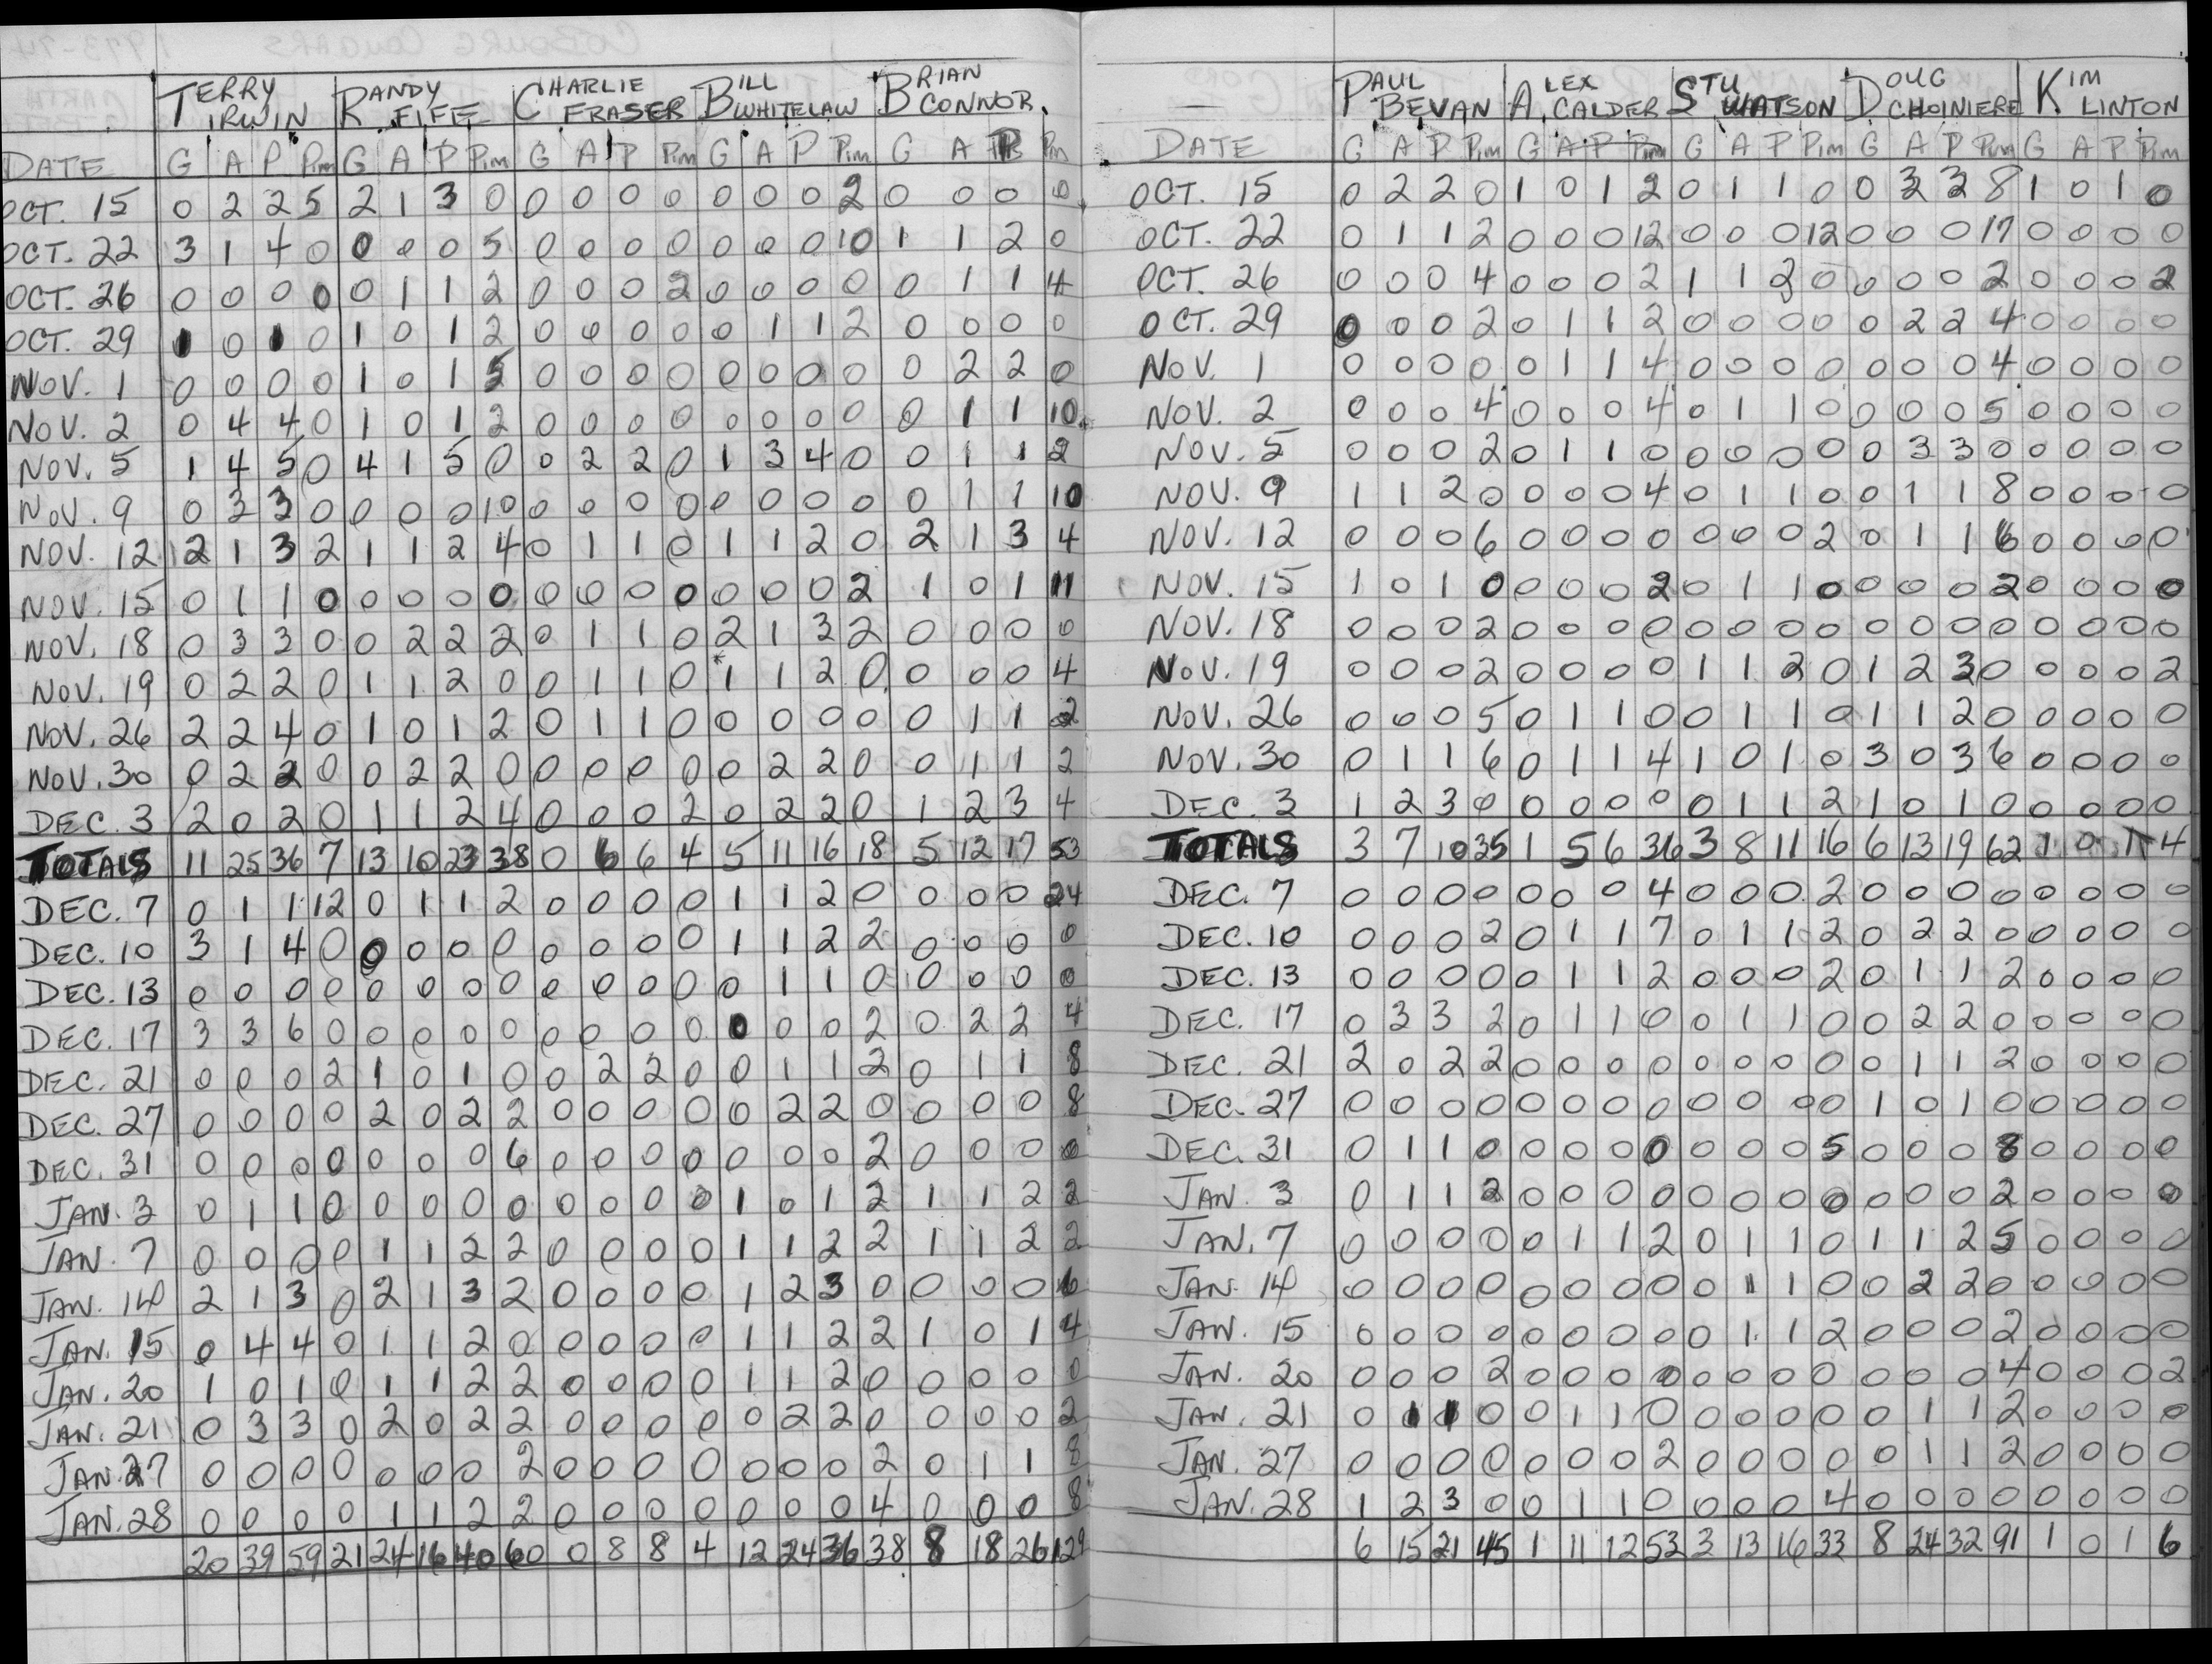 TERRY IRWIN RANDY FIFE CHARLIE FRASER BILL WHITELAW BRIAN CONNOR
DATE G A P Pim G A P Pim G A P Pim G A P Pim G A P Pim
OCT. 15 0 2 2 5 2 1 3 0 0 0 0 0 0 0 0 2 0 0 0 0
OCT. 22 3 1 4 0 0 0 0 5 0 0 0 0 0 0 0 10 1 1 2 0
OCT. 26 0 0 0 0 0 1 1 2 0 0 0 2 0 0 0 0 0 1 1 4
OCT. 29 1 0 1 0 1 0 1 2 0 0 0 0 0 1 1 2 0 0 0 0
NOV. 1 0 0 0 0 1 0 1 5 0 0 0 0 0 0 0 0 0 2 2 0
NOV. 2 0 4 4 0 1 0 1 2 0 0 0 0 0 0 0 0 0 1 1 10
NOV. 5 1 4 5 0 4 1 5 0 0 2 2 0 1 3 4 0 0 1 1 2
NOV. 9 0 3 3 0 0 0 0 10 0 0 0 0 0 0 0 0 0 1 1 10
NOV. 12 2 1 3 2 1 1 2 4 0 1 1 0 1 1 2 0 2 1 3 4
NOV. 15 0 1 1 0 0 0 0 0 0 0 0 0 0 0 0 2 1 0 1 11
NOV. 18 0 3 3 0 0 2 2 2 0 1 1 0 2 1 3 2 0 0 0 0
NOV. 19 0 2 2 0 1 1 2 0 0 1 1 0 *1 1 2 0 0 0 0 4
NOV. 26 2 2 4 0 1 0 1 2 0 1 1 0 0 0 0 0 0 1 1 2
NOV. 30 0 2 2 0 0 2 2 0 0 0 0 0 0 2 2 0 0 1 1 2
DEC. 3 2 0 2 0 1 1 2 4 0 0 0 2 0 2 2 0 1 2 3 4
TOTALS 11 25 36 7 13 10 23 38 0 6 6 4 5 11 16 18 5 12 17 53
DEC. 7 0 1 1 12 0 1 1 2 0 0 0 0 1 1 2 0 0 0 0 24
DEC. 10 3 1 4 0 0 0 0 0 0 0 0 0 1 1 2 2 0 0 0 0
DEC. 13 0 0 0 0 0 0 0 0 0 0 0 0 0 1 1 0 0 0 0 0
DEC. 17 3 3 6 0 0 0 0 0 0 0 0 0 0 0 0 2 0 2 2 4
DEC. 21 0 0 0 2 1 0 1 0 0 2 2 0 0 1 1 2 0 1 1 8
DEC. 27 0 0 0 0 2 0 2 2 0 0 0 0 0 2 2 0 0 0 0 8
DEC. 31 0 0 0 0 0 0 0 6 0 0 0 0 0 0 0 2 0 0 0 0
JAN. 3 0 1 1 0 0 0 0 0 0 0 0 0 1 0 1 2 1 1 2 2
JAN. 7 0 0 0 0 1 1 2 2 0 0 0 0 1 1 2 2 1 1 2 2
JAN. 14 2 1 3 0 2 1 3 2 0 0 0 0 1 2 3 0 0 0 0 6
JAN. 15 0 4 4 0 1 1 2 0 0 0 0 0 1 1 2 2 1 0 1 4
JAN. 20 1 0 1 0 1 1 2 2 0 0 0 0 1 1 2 0 0 0 0 0
JAN. 21 0 3 3 0 2 0 2 2 0 0 0 0 0 2 2 0 0 0 0 2
JAN. 27 0 0 0 0 0 0 0 2 0 0 0 0 0 0 0 2 0 1 1 8
JAN. 28 0 0 0 0 1 1 2 2 0 0 0 0 0 0 0 4 0 0 0 8
20 39 59 21 24 16 40 60 0 8 8 4 12 24 36 38 8 18 26 129
PAUL BEVAN ALEX CALDER STU WATSON DOUG CHOINIERE KIM LINTON
DATE G A P Pim G A P Pim G A P Pim G A P Pim G A P Pim
OCT. 15 0 2 2 0 1 0 1 2 0 1 1 0 0 3 3 8 1 0 1 0
OCT. 22 0 1 1 2 0 0 0 12 0 0 0 12 0 0 0 17 0 0 0 0
OCT. 26 0 0 0 4 0 0 0 2 1 1 2 0 0 0 0 2 0 0 0 2
OCT. 29 0 0 0 2 0 1 1 2 0 0 0 0 0 2 2 4 0 0 0 0
NOV. 1 0 0 0 0 0 1 1 4 0 0 0 0 0 0 0 4 0 0 0 0
NOV. 2 0 0 0 4 0 0 0 4 0 1 1 0 0 0 0 5 0 0 0 0
NOV. 5 0 0 0 2 0 1 1 0 0 0 0 0 0 3 3 0 0 0 0 0
NOV. 9 1 1 2 0 0 0 0 4 0 1 1 0 0 1 1 8 0 0 0 0
NOV. 12 0 0 0 6 0 0 0 0 0 0 0 2 0 1 1 6 0 0 0 0
NOV. 15 1 0 1 0 0 0 0 2 0 1 1 0 0 0 0 2 0 0 0 0
NOV. 18 0 0 0 2 0 0 0 0 0 0 0 0 0 0 0 0 0 0 0 0
NOV. 19 0 0 0 2 0 0 0 0 1 1 2 0 1 2 3 0 0 0 0 2
NOV. 26 0 0 0 5 0 1 1 0 0 1 1 0 1 1 2 0 0 0 0 0
NOV. 30 0 1 1 6 0 1 1 4 1 0 1 0 3 0 3 6 0 0 0 0
DEC. 3 1 2 3 0 0 0 0 0 0 1 1 2 1 0 1 0 0 0 0 0
TOTALS 3 7 10 35 1 5 6 36 3 8 11 16 6 13 19 62 1 0 1 4
DEC. 7 0 0 0 0 0 0 0 4 0 0 0 2 0 0 0 0 0 0 0 0
DEC. 10 0 0 0 2 0 1 1 7 0 1 1 2 0 2 2 0 0 0 0 0
DEC. 13 0 0 0 0 0 1 1 2 0 0 0 2 0 1 1 2 0 0 0 0
DEC. 17 0 3 3 2 0 1 1 0 0 1 1 0 0 2 2 0 0 0 0 0
DEC. 21 2 0 2 2 0 0 0 0 0 0 0 0 0 1 1 2 0 0 0 0
DEC. 27 0 0 0 0 0 0 0 0 0 0 0 0 1 0 1 0 0 0 0 0
DEC. 31 0 1 1 0 0 0 0 0 0 0 0 5 0 0 0 8 0 0 0 0
JAN. 3 0 1 1 2 0 0 0 0 0 0 0 0 0 0 0 2 0 0 0 0
JAN. 7 0 0 0 0 0 1 1 2 0 1 1 0 1 1 2 5 0 0 0 0
JAN. 14 0 0 0 0 0 0 0 0 0 1 1 0 0 2 2 0 0 0 0 0
JAN. 15 0 0 0 0 0 0 0 0 0 1 1 2 0 0 0 2 0 0 0 0
JAN. 20 0 0 0 2 0 0 0 0 0 0 0 0 0 0 0 4 0 0 0 2
JAN. 21 0 1 1 0 0 1 1 0 0 0 0 0 0 1 1 2 0 0 0 0
JAN. 27 0 0 0 0 0 0 0 2 0 0 0 0 0 1 1 2 0 0 0 0
JAN. 28 1 2 3 0 0 1 1 0 0 0 0 4 0 0 0 0 0 0 0 0
6 15 21 45 1 11 12 53 3 13 16 33 8 24 32 91 1 0 1 6